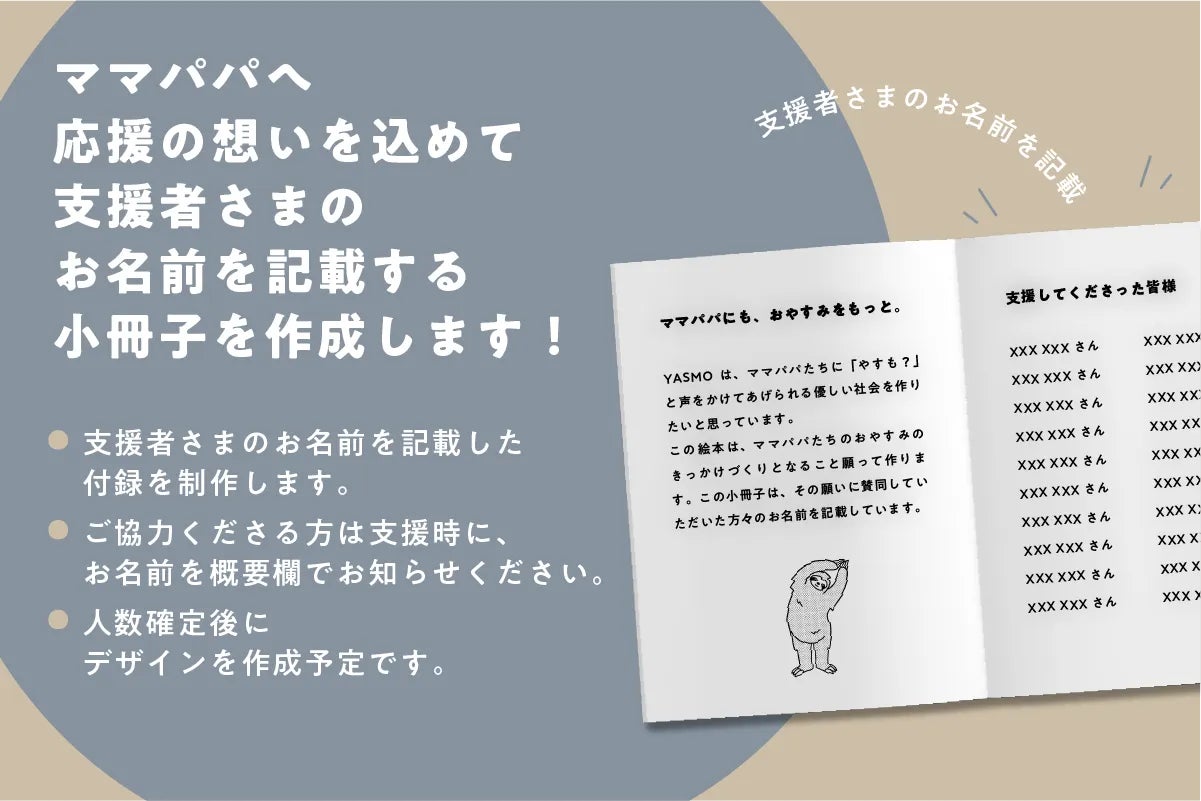 ママパパへ
応援の想いを込めて
支援者さまの
お名前を記載する
小冊子を作成します！
支援者さまのお名前を記載した
付録を制作します。
ご協力くださる方は支援時に、
お名前を概要欄でお知らせください。
人数確定後に
デザインを作成予定です。
支援者さまのお名前を記載
ママパパにも、おやすみをもっと。
YASMO は、ママパパたちに「やすも？」
と声をかけてあげられる優しい社会を作り
たいと思っています。
この絵本は、ママパパたちのおやすみの
きっかけづくりとなること願って作りま
す。この小冊子は、その願いに賛同してい
ただいた方々のお名前を記載しています。
支援してくださった皆様
XXX XXX さん XXX XXX
XXX XXX さん XXX XX
XXX XXX さん XXX XX
XXX XXX さん XXX XX
XXX XXX さん XXX XX
XXX XXX さん XXX X
XXX XXX さん XXX X
XXX XXX さん XXX X
XXX XXX さん XXX X
XXX XXX さん XXX X